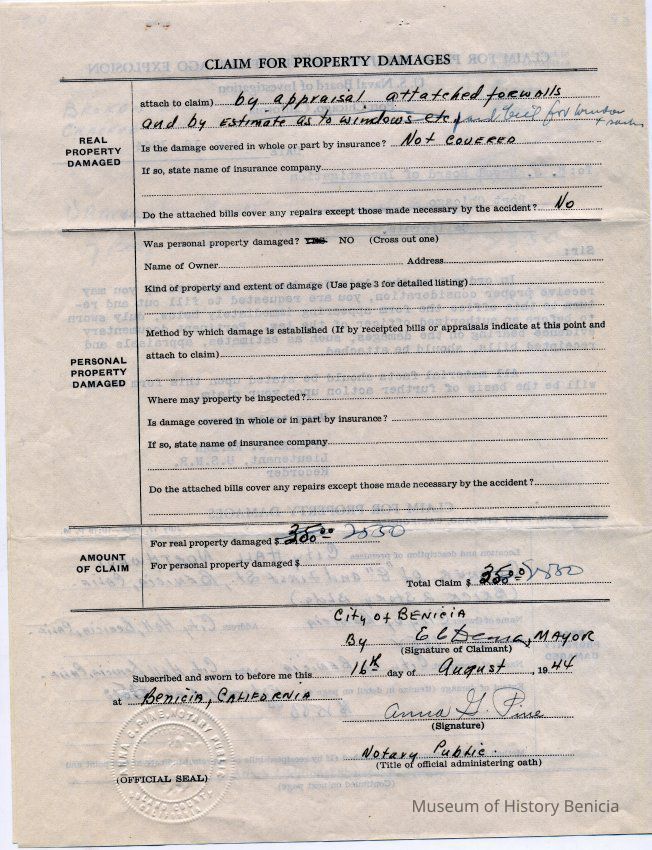 CLAIM FOR PROPERTY DAMAGES
attach to claim) by appraisal attatched for walls
and by estimate as to windows etc and bill for window
REAL
PROPERTY
DAMAGED
Is the damage covered in whole or part by insurance? Not covered
If so, state name of insurance company
Do the attached bills cover any repairs except those made necessary by the accident? No
PERSONAL
PROPERTY
DAMAGED
Was personal property damaged? YES NO (Cross out one)
Name of Owner Address
Kind of property and extent of damage (Use page 3 for detailed listing)
Method by which damage is established (If by receipted bills or appraisals indicate at this point and
attach to claim)
Where may property be inspected?
Is damage covered in whole or in part by insurance?
If so, state name of insurance company
Do the attached bills cover any repairs except those made necessary by the accident?
AMOUNT
OF CLAIM
For real property damaged $
For personal property damaged $
Total Claim $
City of BENICIA
By MAYOR
(Signature of Claimant)
Subscribed and sworn to before me this 16th day of August, 1944
at Benicia, CALIFORNIA
Anna G. Pine
(Signature)
Notary Public.
(Title of official administering oath)
(OFFICIAL SEAL)
Museum of History Benicia